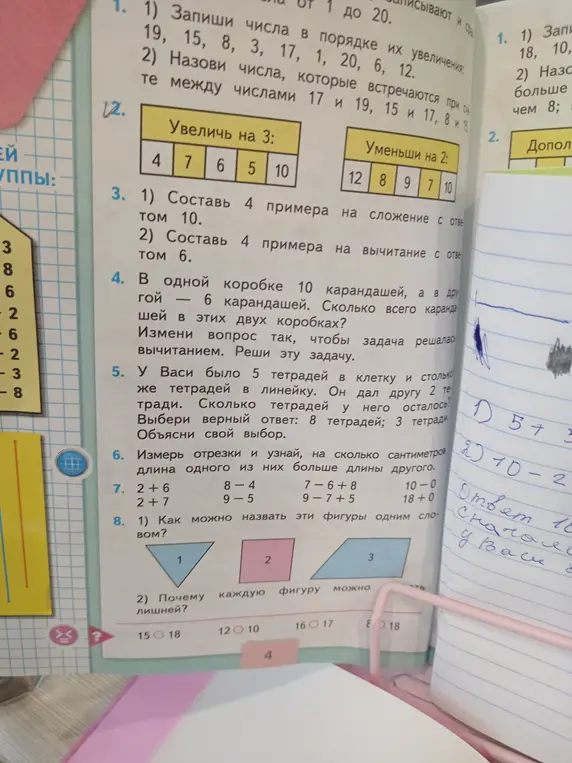 от 1 до 20.
1. 1) Запиши числа в порядке их увеличения:
19, 15, 8, 3, 17, 1, 20, 6, 12.
2) Назови числа, которые встречаются при
те между числами 17 и 19, 15 и 17, 8 и
2.
Увеличь на 3:
4 7 6 5 10
Уменьши на 2:
12 8 9 7 10
3. 1) Составь 4 примера на сложение с отве
том 10.
2) Составь 4 примера на вычитание с отве
том 6.
4. В одной коробке 10 карандашей, а в дру
гой — 6 карандашей. Сколько всего каранда
шей в этих двух коробках?
Измени вопрос так, чтобы задача решалась
вычитанием. Реши эту задачу.
5. У Васи было 5 тетрадей в клетку и столько
же тетрадей в линейку. Он дал другу 2 те
тради. Сколько тетрадей у него осталось?
Выбери верный ответ: 8 тетрадей; 3 тетради
Объясни свой выбор.
6. Измерь отрезки и узнай, на сколько сантиметров
длина одного из них больше длины другого.
7. 2+6 8−4 7−6+8 10−0
2+7 9−5 9−7+5 18+0
8. 1) Как можно назвать эти фигуры одним сло-
вом?
1 2 3
2) Почему каждую фигуру можно
лишней?
15 18 12 10 16 17 8 18
?
4
ЕЙ
УППЫ:
3
8
6
2
6
2
3
8
1. 1) Запи
18, 10,
2) Назо
больше
чем 8;
2.
Допол
1) 5+3
2) 10−2
Ответ
сначал
у Васи